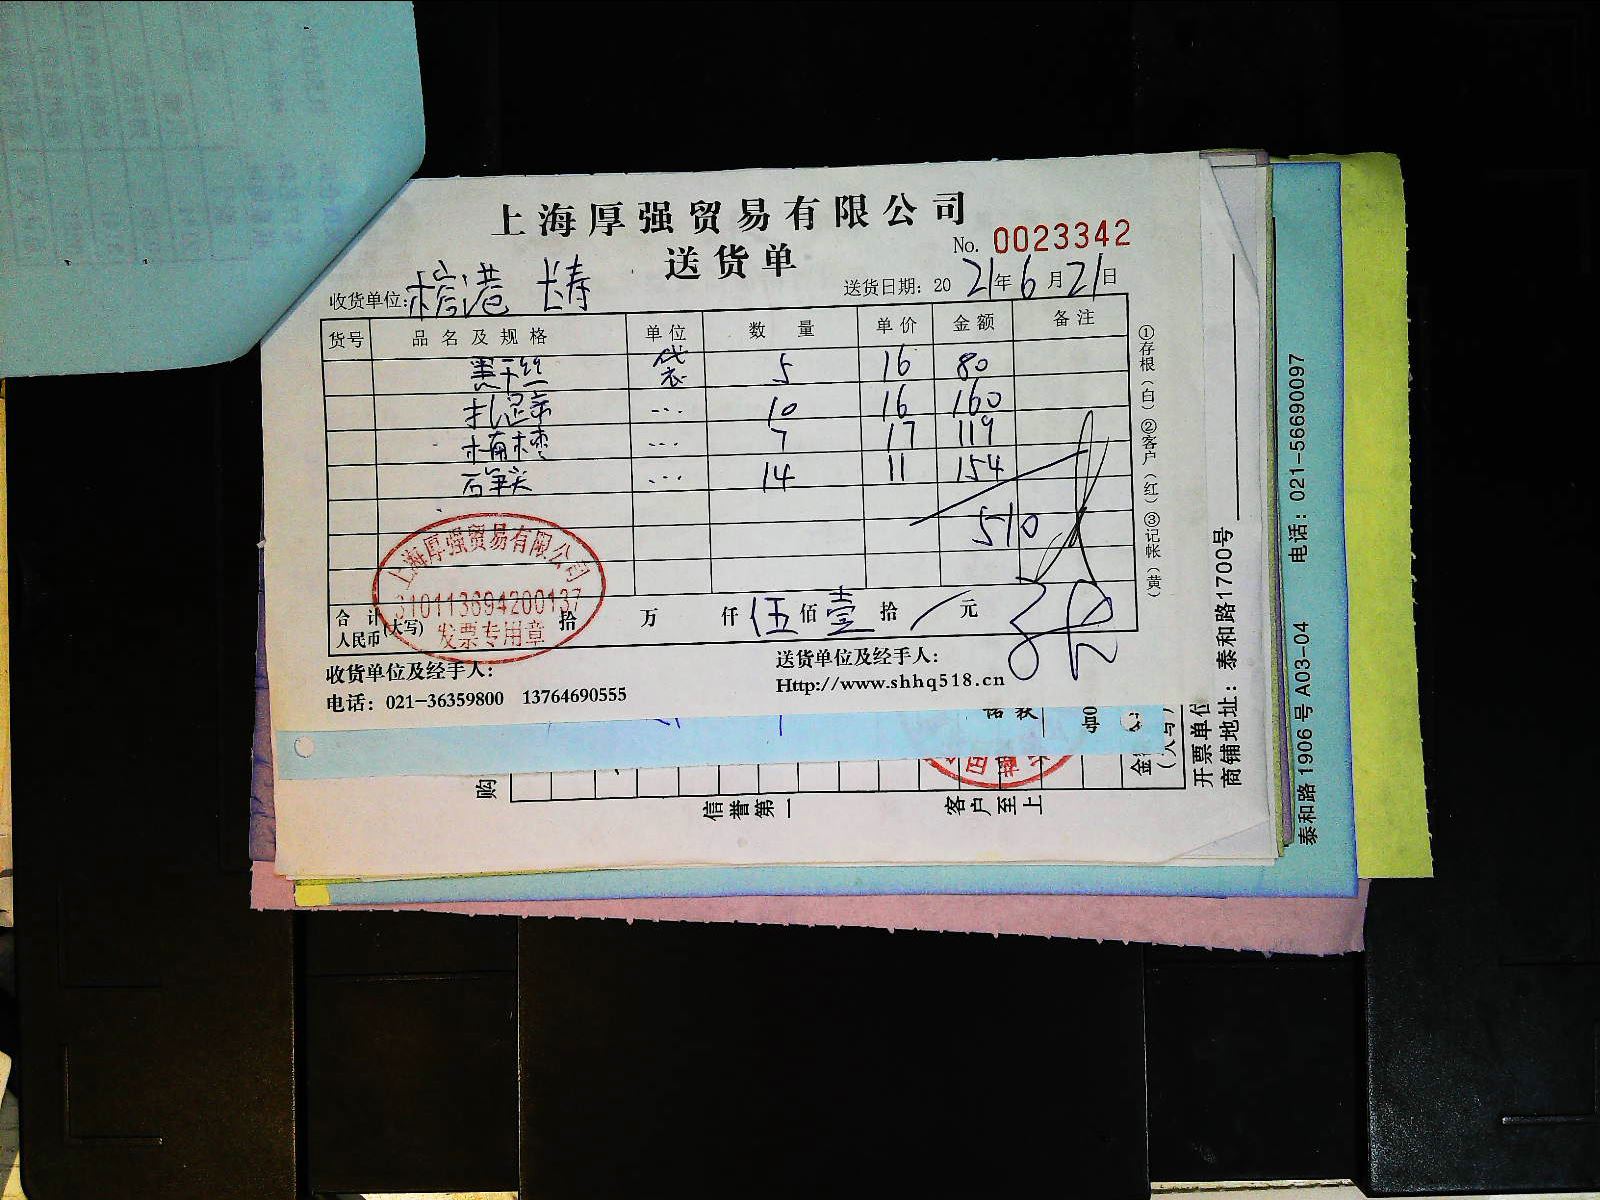 上海厚强贸易有限公司
No. 0023342
送货单
收货单位: 长寿
送货日期: 2021年6月21日
货号 品名及规格 单位 数量 单价 金额 备注
干丝 袋 5 16 80
扎 10 16 160
7 17 119
14 11 154
510
合计人民币(大写) 拾 万 仟 伍 佰 壹 拾 元
上海厚强贸易有限公司
310113694200137
发票专用章
收货单位及经手人:
送货单位及经手人:
电话: 021-36359800 13764690555
Http://www.shhq518.cn
①存根(白) ②客户(红) ③记帐(黄)
购
信誉第一
客户至上
开票单位
商铺地址: 泰和路1700号
泰和路1906号A03-04 电话: 021-56690097